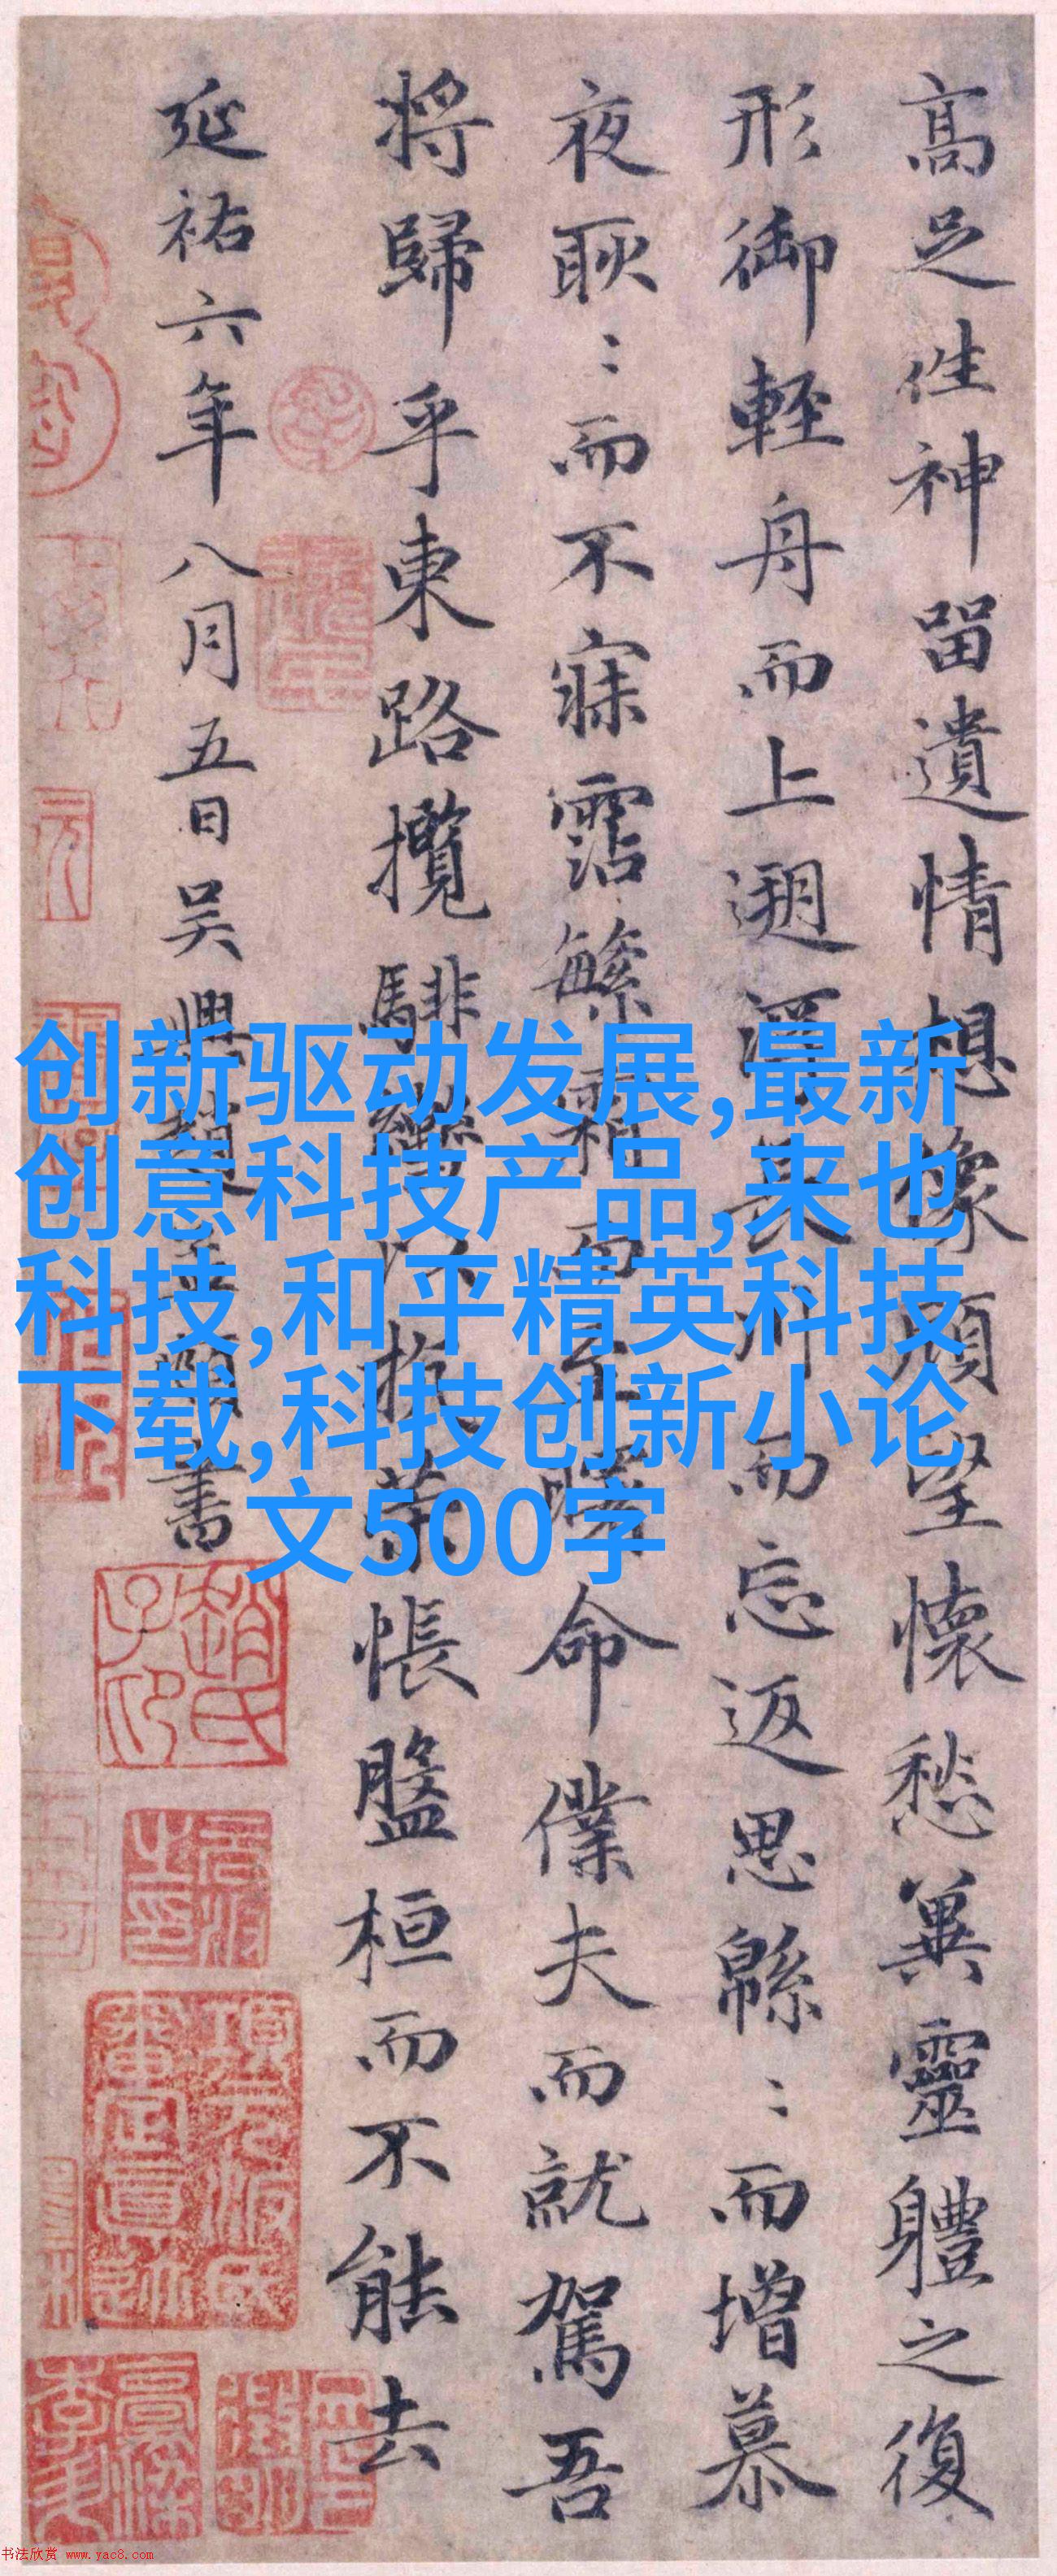 高足往神留遺情想像顧望懷愁冀靈體之復
形御輕舟而上遡浮長川而忘返思緜〻而增慕
夜耿〻而不寐霑繁霜而至曙命僕夫而就駕吾
將歸乎東路攬騑轡以抗策悵盤桓而不能去
延祐六年八月五日吳興趙孟頫書
创新驱动发展,最新
创意科技产品,来也
科技,和平精英科技
下载,科技创新小论
文500字
书法欣赏 www.yac8.com